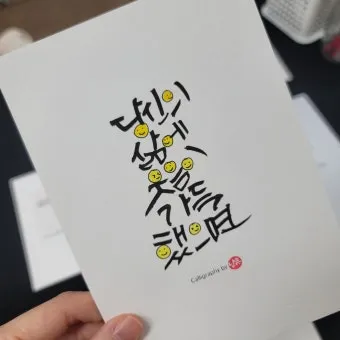 당신의
삶에
웃음
가득
했으면
Calligraphy by